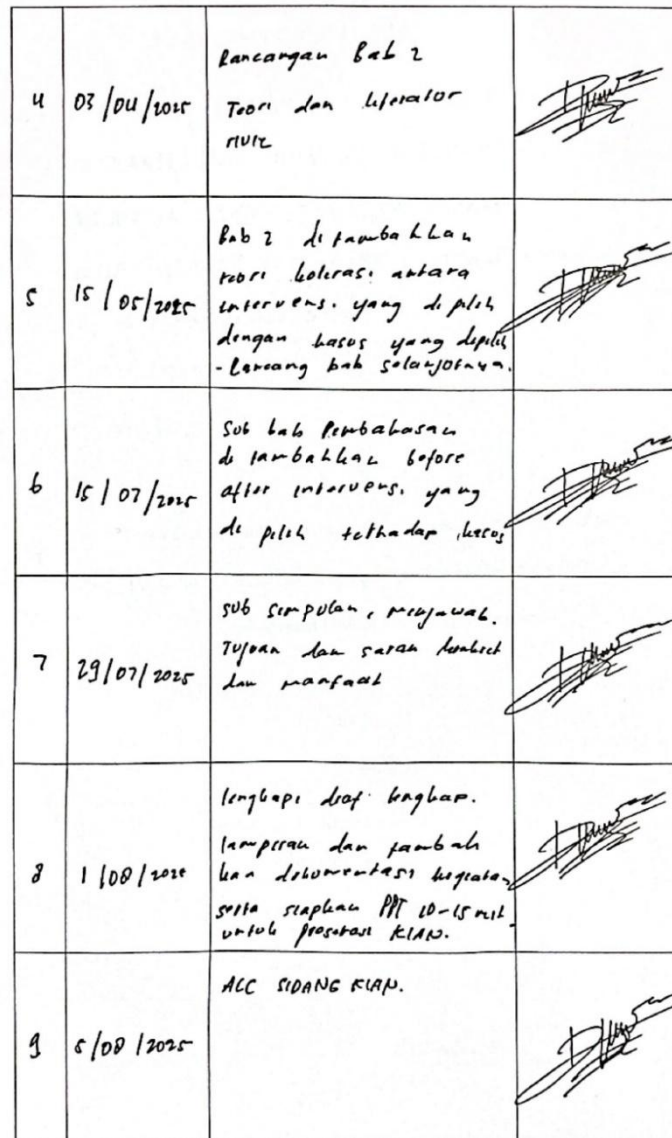 4
03/04/2025
Rancangan Bab 2
Teori dan literator
5
15/05/2025
Bab 2 ditambahkan
teori kolerasi antara
intervensi yang dipilih
dengan kasus yang dipilih
- Rancang bab selanjotnya.
6
15/07/2025
Sub bab Pembahasan
ditambahkan before
after intervensi yang
di pilih tethadap kasus
7
29/07/2025
sub simpulan, menjawab.
Tujuan dan saran
dan manfaat
8
1/08/2025
lengkapi draf lengkap.
lampiran dan tambah
kan dokumentasi kegiatan
serta siapkan PPT 10-15 mit
untuk presetasi KIAN.
9
5/08/2025
ACC SIDANG KIAN.